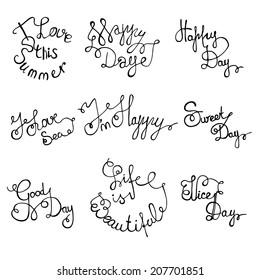 I Love
this
Summer
Happy
Day
Happy
Day
I Love
Sea
I'm Happy
Sweet
Day
Good
Day
Life
is
Beautiful
Nice
Day
shutterstock.com · 207701851